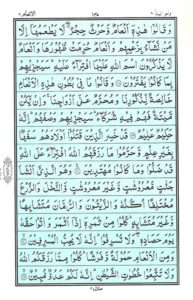 ولو اننا ٨ الانعام ٦
وَقَالُوْا هٰذِهٖٓ اَنْعَامٌ وَّحَرْثٌ حِجْرٌ لَّا يَطْعَمُهَآ اِلَّا
مَنْ نَّشَآءُ بِزَعْمِهِمْ وَاَنْعَامٌ حُرِّمَتْ ظُهُوْرُهَا وَاَنْعَامٌ
لَّا يَذْكُرُوْنَ اسْمَ اللّٰهِ عَلَيْهَا افْتِرَآءً عَلَيْهِ سَيَجْزِيْهِمْ
بِمَا كَانُوْا يَفْتَرُوْنَ وَقَالُوْا مَا فِيْ بُطُوْنِ هٰذِهِ الْاَنْعَامِ
خَالِصَةٌ لِّذُكُوْرِنَا وَمُحَرَّمٌ عَلٰٓى اَزْوَاجِنَا وَاِنْ يَّكُنْ
مَّيْتَةً فَهُمْ فِيْهِ شُرَكَآءُ سَيَجْزِيْهِمْ وَصْفَهُمْ اِنَّهٗ
حَكِيْمٌ عَلِيْمٌ قَدْ خَسِرَ الَّذِيْنَ قَتَلُوْٓا اَوْلَادَهُمْ سَفَهًا
بِغَيْرِ عِلْمٍ وَّحَرَّمُوْا مَا رَزَقَهُمُ اللّٰهُ افْتِرَآءً عَلَى اللّٰهِ
قَدْ ضَلُّوْا وَمَا كَانُوْا مُهْتَدِيْنَ وَهُوَ الَّذِيْٓ اَنْشَاَ
جَنّٰتٍ مَّعْرُوْشٰتٍ وَّغَيْرَ مَعْرُوْشٰتٍ وَّالنَّخْلَ وَالزَّرْعَ
مُخْتَلِفًا اُكُلُهٗ وَالزَّيْتُوْنَ وَالرُّمَّانَ مُتَشَابِهًا
وَّغَيْرَ مُتَشَابِهٍ كُلُوْا مِنْ ثَمَرِهٖٓ اِذَآ اَثْمَرَ وَاٰتُوْا حَقَّهٗ
يَوْمَ حَصَادِهٖ وَلَا تُسْرِفُوْا اِنَّهٗ لَا يُحِبُّ الْمُسْرِفِيْنَ
وَمِنَ الْاَنْعَامِ حَمُوْلَةً وَّفَرْشًا كُلُوْا مِمَّا رَزَقَكُمُ اللّٰهُ
وَلَا تَتَّبِعُوْا خُطُوٰتِ الشَّيْطٰنِ اِنَّهٗ لَكُمْ عَدُوٌّ مُّبِيْنٌ